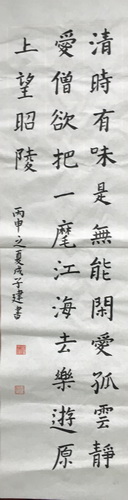 清時有味是無能閑愛孤雲靜
愛僧欲把一麾江海去樂遊原
上望昭陵
丙申之夏戌子建書